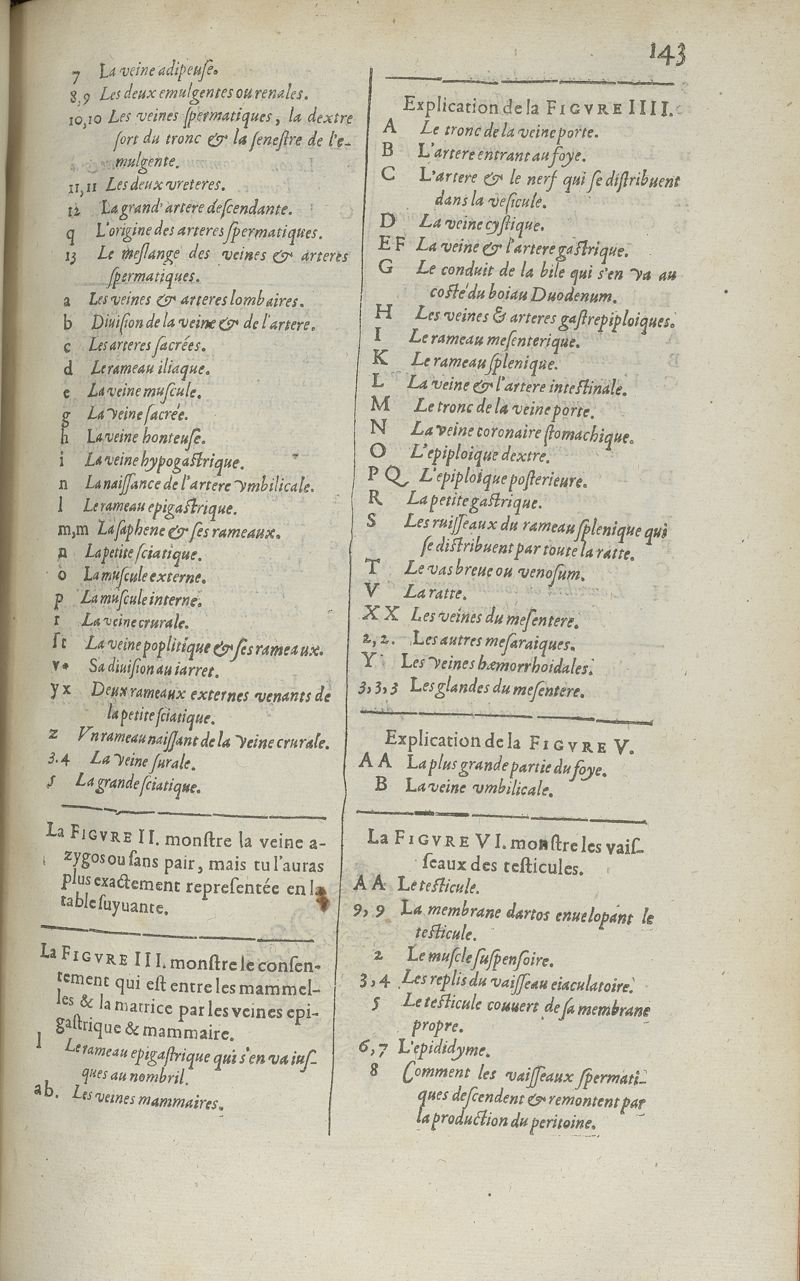 143
7 La veine adipeuſe.
8,9 Les deux emulgentes ou renales.
10,10 Les veines ſpermatiques, la dextre
ſort du tronc & la ſeneſtre de l'e-
mulgente.
11,11 Les deux vreteres.
12 La grand' artere deſcendante.
q L'origine des arteres ſpermatiques.
13 Le meſlange des veines & arteres
ſpermatiques.
a Les veines & arteres lombaires.
b Diuiſion de la veine & de l'artere.
c Les arteres ſacrées.
d Le rameau iliaque.
e La veine muſcule.
g La veine ſacrée.
h La veine honteuſe.
i La veine hypogaſtrique.
n La naiſſance de l'artere vmbilicale.
l Le rameau epigaſtrique.
m,m La ſaphene & ſes rameaux.
n La petite ſciatique.
o La muſcule externe.
p La muſcule interne.
r La veine crurale.
ſt La veine poplitique & ſes rameaux.
v* Sa diuiſion au iarret.
y x Deux rameaux externes venants de
la petite ſciatique.
z Vn rameau naiſſant de la veine crurale.
3.4 La veine ſurale.
5 La grande ſciatique.
La FIGVRE II. monſtre la veine a-
zygos ou ſans pair, mais tu l'auras
plus exactement repreſentée en la
table ſuyuante.
La FIGVRE III. monſtre le conſen-
tement qui eſt entre les mammel-
les & la matrice par les veines epi-
gaſtrique & mammaire.
1 Le rameau epigaſtrique qui s'en va iuſ-
ques au nombril.
ab. Les veines mammaires.
Explication de la FIGVRE IIII.
A Le tronc de la veine porte.
B L'artere entrant au foye.
C L'artere & le nerf qui ſe diſtribuent
dans la veſicule.
D La veine cyſtique.
E F La veine & l'artere gaſtrique.
G Le conduit de la bile qui s'en va au
coſté du boiau Duodenum.
H Les veines & arteres gaſtrepiploiques.
I Le rameau meſenterique.
K Le rameau ſplenique.
L La veine & l'artere inteſtinale.
M Le tronc de la veine porte.
N La veine coronaire ſtomachique.
O L'epiploique dextre.
P Q L'epiploique poſterieure.
R La petite gaſtrique.
S Les ruiſſeaux du rameau ſplenique qui
ſe diſtribuent par toute la ratte.
T Le vas breue ou venoſum.
V La ratte.
X X Les veines du meſentere.
2,2. Les autres meſaraiques.
Y Les veines hæmorrhoidales.
3,3,3 Les glandes du meſentere.
Explication de la FIGVRE V.
A A La plus grande partie du foye.
B La veine vmbilicale.
La FIGVRE VI. monſtre les vaiſ-
ſeaux des teſticules.
A A Le teſticule.
9,9 La membrane dartos enuelopant le
teſticule.
2 Le muſcle ſuſpenſoire.
3,4 Les replis du vaiſſeau eiaculatoire.
5 Le teſticule couuert de ſa membrane
propre.
6,7 L'epididyme.
8 Comment les vaiſſeaux ſpermati-
ques deſcendent & remontent par
la production du peritoine.